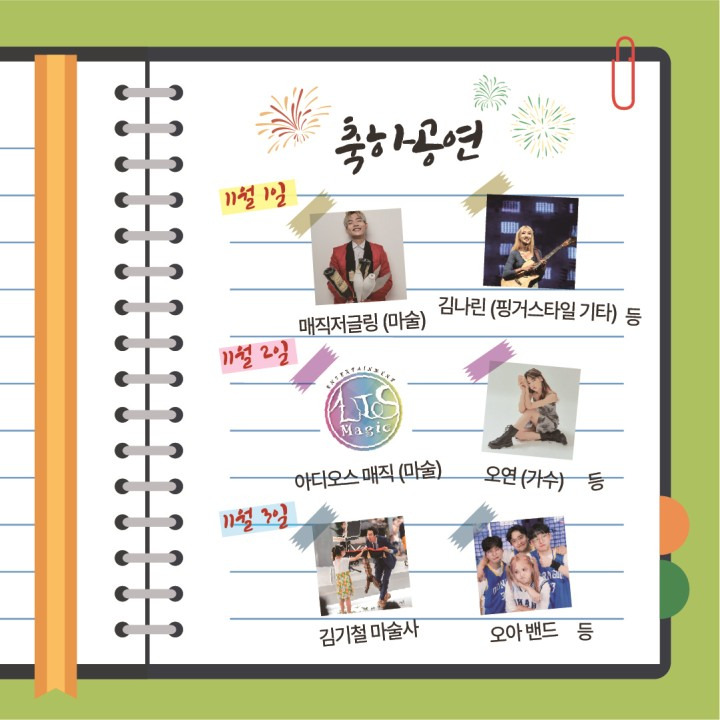 축하공연
11월 1일
매직저글링 (마술)
김나린 (핑거스타일 기타) 등
11월 2일
ENTERTAINMENT
Magic
아디오스 매직 (마술)
오연 (가수) 등
11월 3일
김기철 마술사
오아 밴드 등